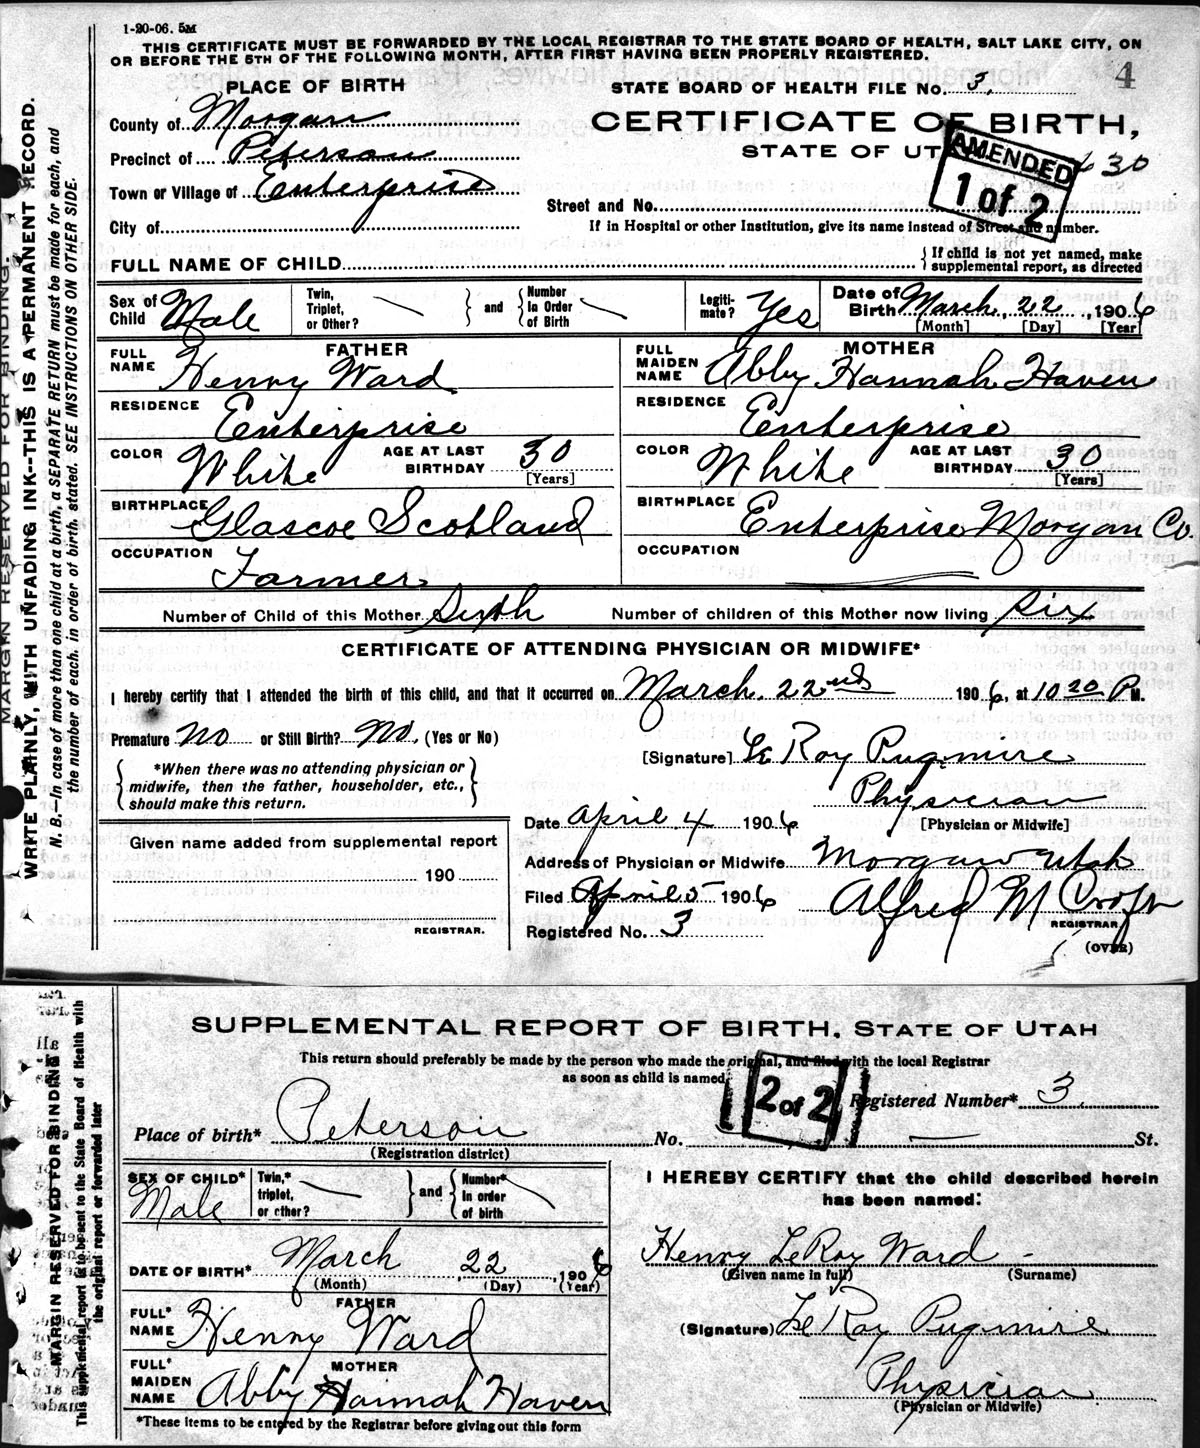 1-20-06. 5M
THIS CERTIFICATE MUST BE FORWARDED BY THE LOCAL REGISTRAR TO THE STATE BOARD OF HEALTH, SALT LAKE CITY, ON
OR BEFORE THE 5TH OF THE FOLLOWING MONTH, AFTER FIRST HAVING BEEN PROPERLY REGISTERED.
4
PLACE OF BIRTH
STATE BOARD OF HEALTH FILE No. 3.
County of Morgan
CERTIFICATE OF BIRTH,
Precinct of Peterson
STATE OF UT
AMENDED
1 of 2
630
Town or Village of Enterprise
Street and No.
City of
If in Hospital or other Institution, give its name instead of Street and number.
FULL NAME OF CHILD
If child is not yet named, make
supplemental report, as directed
Sex of Child Male
Twin, Triplet, or Other?
and
Number In Order of Birth
Legiti- mate? Yes
Date of Birth March 22, 1906
[Month] [Day] [Year]
FATHER
FULL NAME Henry Ward
RESIDENCE Enterprise
COLOR White
AGE AT LAST BIRTHDAY 30
[Years]
BIRTHPLACE Glascoe Scotland
OCCUPATION Farmer
MOTHER
FULL MAIDEN NAME Abby Hannah Haven
RESIDENCE Enterprise
COLOR White
AGE AT LAST BIRTHDAY 30
[Years]
BIRTHPLACE Enterprise Morgan Co.
OCCUPATION
Number of Child of this Mother Sixth
Number of children of this Mother now living Six
CERTIFICATE OF ATTENDING PHYSICIAN OR MIDWIFE*
I hereby certify that I attended the birth of this child, and that it occurred on March 22nd 1906, at 10 20 P M.
Premature No or Still Birth? No. (Yes or No)
[Signature] Le Roy Pugmire
*When there was no attending physician or
midwife, then the father, householder, etc.,
should make this return.
Physician
[Physician or Midwife]
Date April 4 1906
Given name added from supplemental report
190
REGISTRAR.
Address of Physician or Midwife Morgan Utah
Filed April 5 1906 Alfred M Croft
REGISTRAR
Registered No. 3
(OVER)
MARGIN RESERVED FOR BINDING.
WRITE PLAINLY, WITH UNFADING INK--THIS IS A PERMANENT RECORD.
N. B.—In case of more than one child at a birth, a SEPARATE RETURN must be made for each, and
the number of each, in order of birth, stated. SEE INSTRUCTIONS ON OTHER SIDE.
SUPPLEMENTAL REPORT OF BIRTH, STATE OF UTAH
This return should preferably be made by the person who made the original, and filed with the local Registrar
as soon as child is named
2 of 2
Registered Number* 3.
Place of birth* Peterson No. St.
(Registration district)
SEX OF CHILD* Male
Twin,* triplet, or other?
and
Number* in order of birth
DATE OF BIRTH* March 22, 1906
(Month) (Day) (Year)
FATHER
FULL* NAME Henry Ward
MOTHER
FULL* MAIDEN NAME Abby Hannah Haven
*These items to be entered by the Registrar before giving out this form
I HEREBY CERTIFY that the child described herein
has been named:
Henry LeRoy Ward
(Given name in full) (Surname)
(Signature) Le Roy Pugmire
Physician
(Physician or Midwife)
MARGIN RESERVED FOR BINDING
This supplemental report is to be sent to the State Board of Health with
the original report or forwarded later